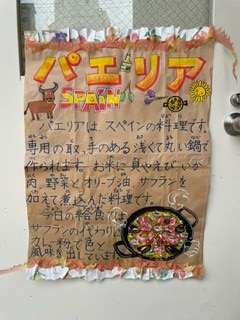 パエリア
SPAIN
パエリアは、スペインの料理です。
専用の取っ手のある浅くて丸い鍋で
作られます。お米に貝やえび、いか
肉、野菜とオリーブ油、サフランを
加えて煮込んだ料理です。
今日の給食では、
サフランの代わりに
カレー粉で色と
風味を出しています。